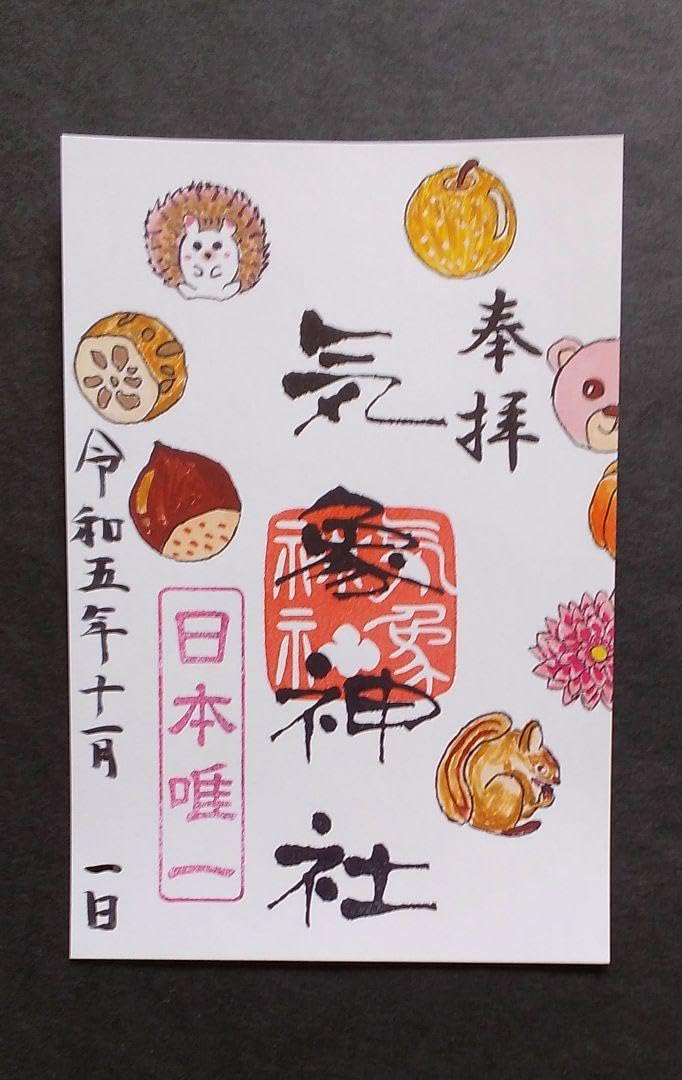 奉拝
気象神社
気象神社
日本唯一
令和五年十一月 一日